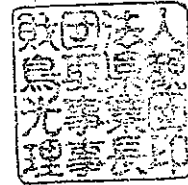 財団法人
鳥取県観
光事業団
理事長印